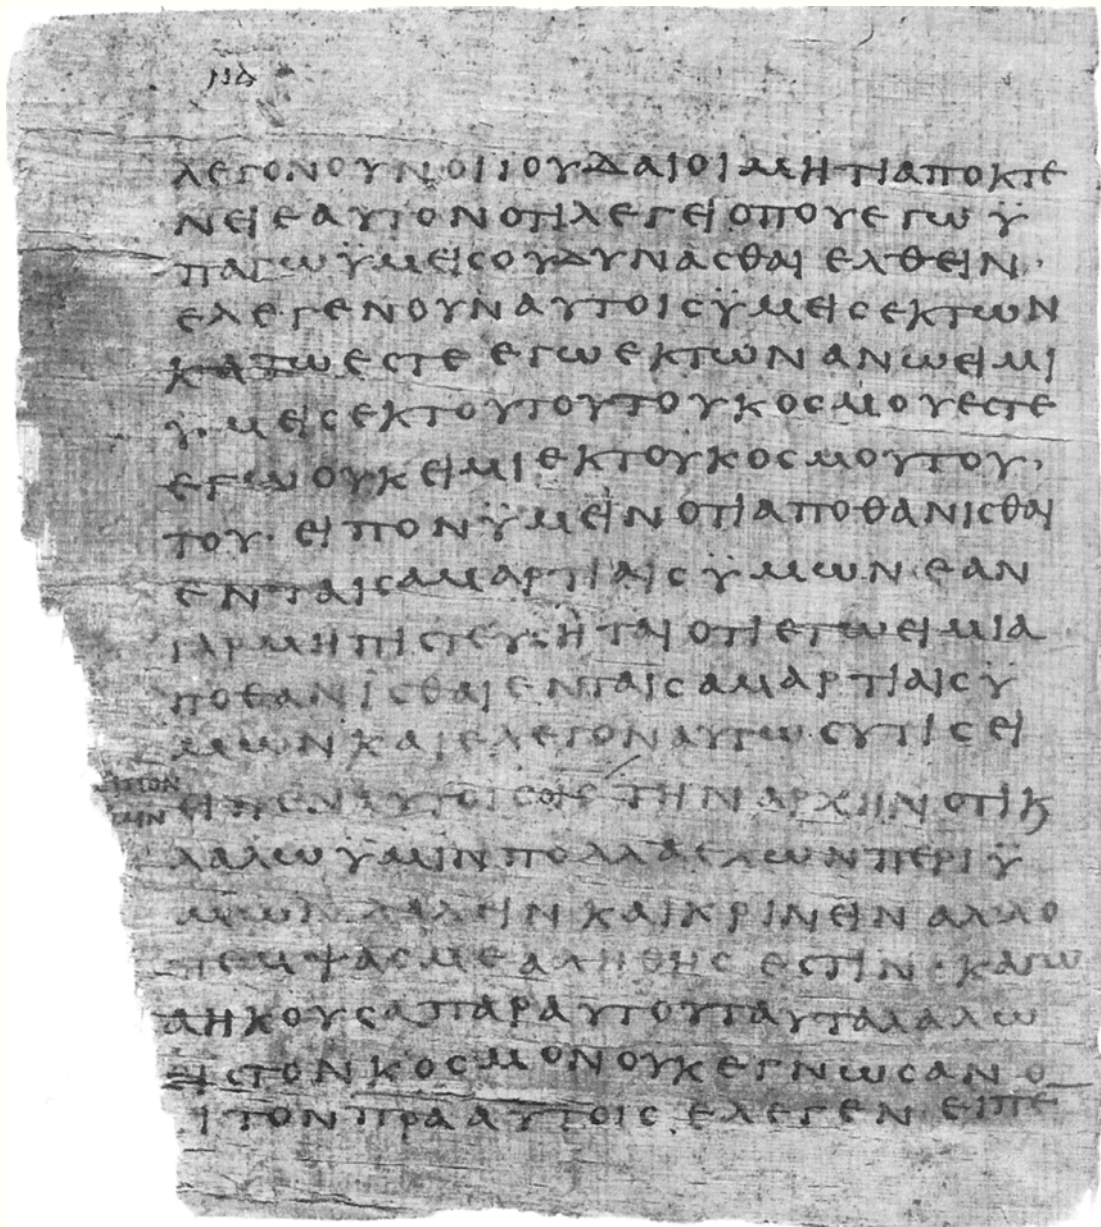 νδ
λεγονουνοιϊουδαιοιμητιαποκτε
νειεαυτονοτιλεγειοπουεγωϋ
παγωϋμειςουδυναςθαιελθειν·
ελεγενουναυτοιςϋμειςεκτων
κατωεςτεεγωεκτωνανωειμι
ϋμειςεκτουτουτουκοςμουεςτε
εγωουκειμιεκτουκοςμουτου·
του·ειπονϋμεινοτιαποθανιςθαι
ενταιςαμαρτιαιςϋμωνεαν
γαρμηπιςτευςηταιοτιεγωειμια
ποθανιςθαιενταιςαμαρτιαιςϋ
μωνκαιελεγοναυτωςυτιςει
ειπον
ειπεναυτοιςοιςτηναρχηνοτικ
λαλωϋμινπολλαεχωνπεριϋ
μωνλαλεινκαικρινειναλλο
πεμψαςμεαληθηςεςτιν·καγω
αηκουςαπαραυτουταυταλαλω
ειςτονκοςμονουκεγνωςανο
τιτονπρααυτοιςελεγενειπε